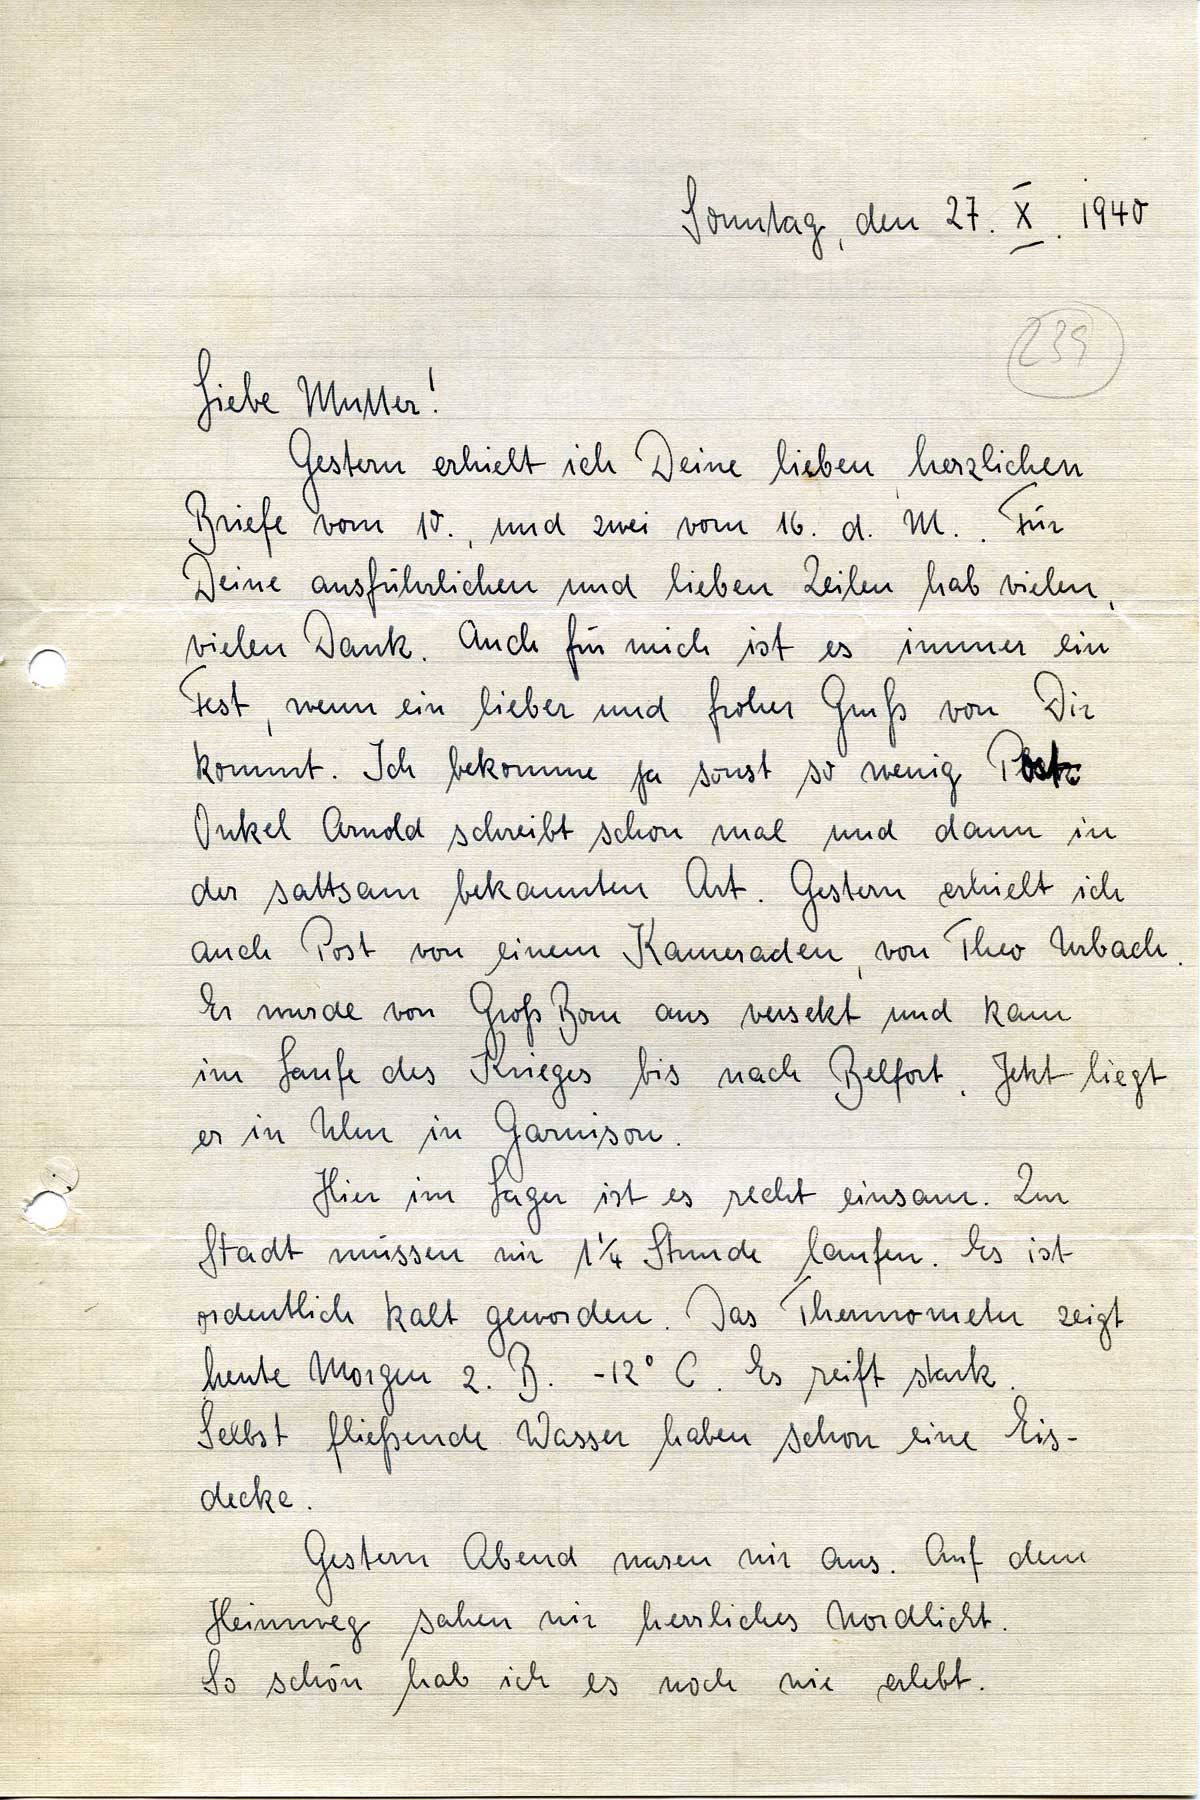 Sonntag, den 27. X. 1940
239
Liebe Mutter!
Gestern erhielt ich Deine lieben, herzlichen
Briefe vom 10., und zwei vom 16. d. M.. Für
Deine ausführlichen und lieben Zeilen hab vielen,
vielen Dank. Auch für mich ist es immer ein
Fest, wenn ein lieber und froher Gruß von Dir
kommt. Ich bekomme ja sonst so wenig Post.
Onkel Arnold schreibt schon mal und dann in
der sattsam bekannten Art. Gestern erhielt ich
auch Post von einem Kameraden, von Theo Urbach.
Er wurde von Groß Born aus versetzt und kam
im Laufe des Krieges bis nach Belfort. Jetzt liegt
er in Ulm in Garnison.
Hier im Lager ist es recht einsam. Zur
Stadt müssen wir 1¼ Stunde laufen. Es ist
ordentlich kalt geworden. Das Thermometer zeigt
heute Morgen z. B. -12° C. Es reift stark.
Selbst fließende Wasser haben schon eine Eis-
decke.
Gestern Abend waren wir aus. Auf dem
Heimweg sahen wir herrliches Nordlicht.
So schön hab ich es noch nie erlebt.